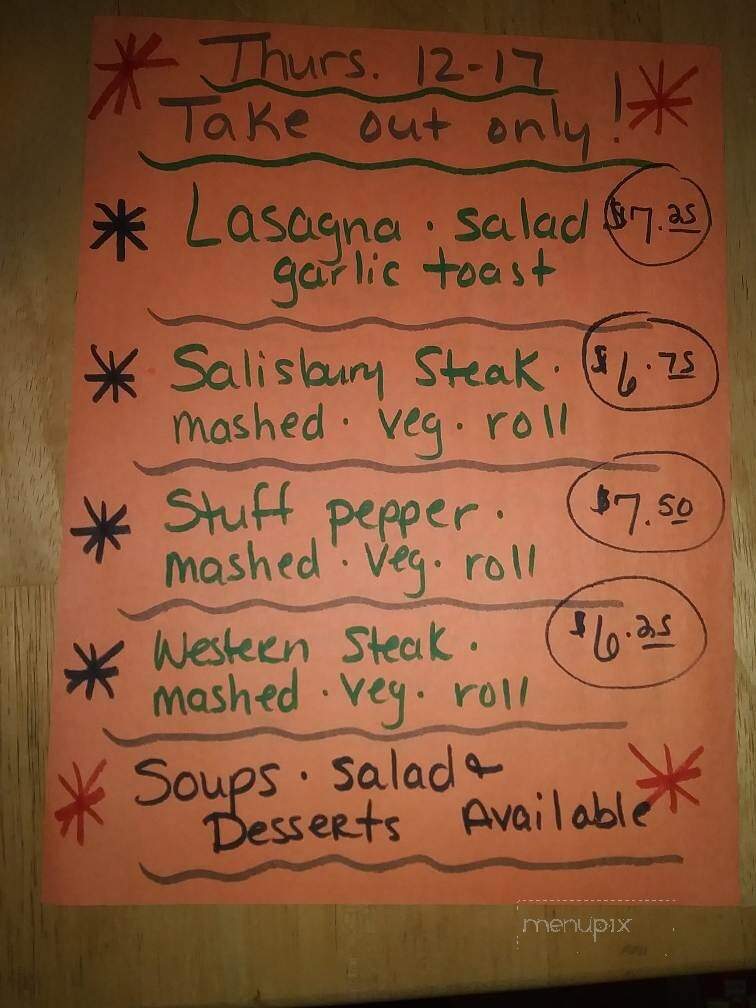 Thurs. 12-17
Take out only!
Lasagna · salad $7.25
garlic toast
Salisbury Steak · $6.75
mashed · veg · roll
Stuff pepper · $7.50
mashed · Veg · roll
Western Steak · $6.25
mashed · Veg · roll
Soups · salad &
Desserts Available
menupix